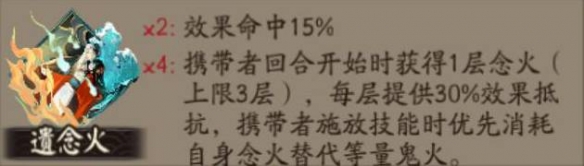 x2: 效果命中15%
x4: 携带者回合开始时获得1层念火（
上限3层），每层提供30%效果抵
抗，携带者施放技能时优先消耗
自身念火替代等量鬼火。
遺念火